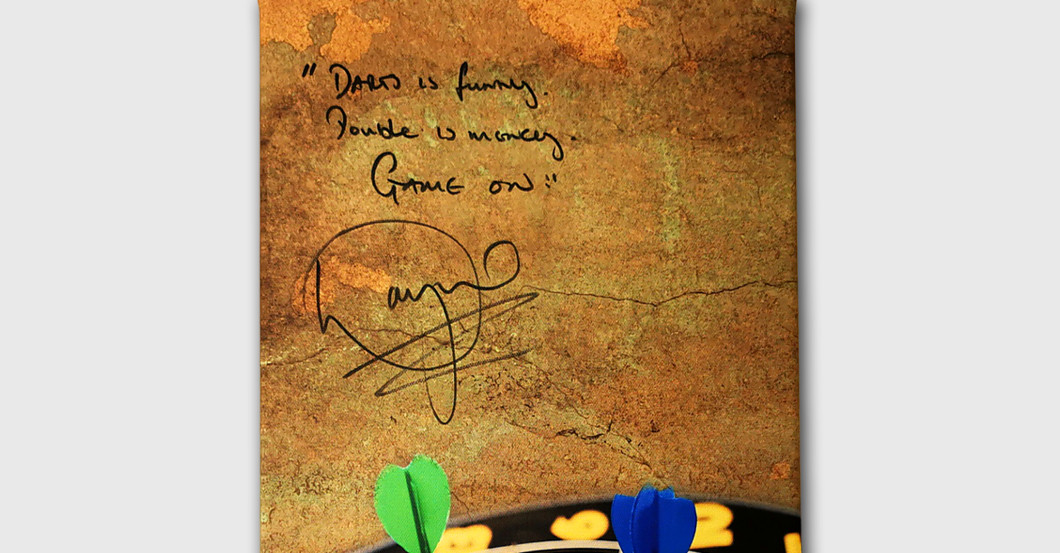 "DARTS is funny.
Double is money.
GAME ON!"
Wayne
6
2